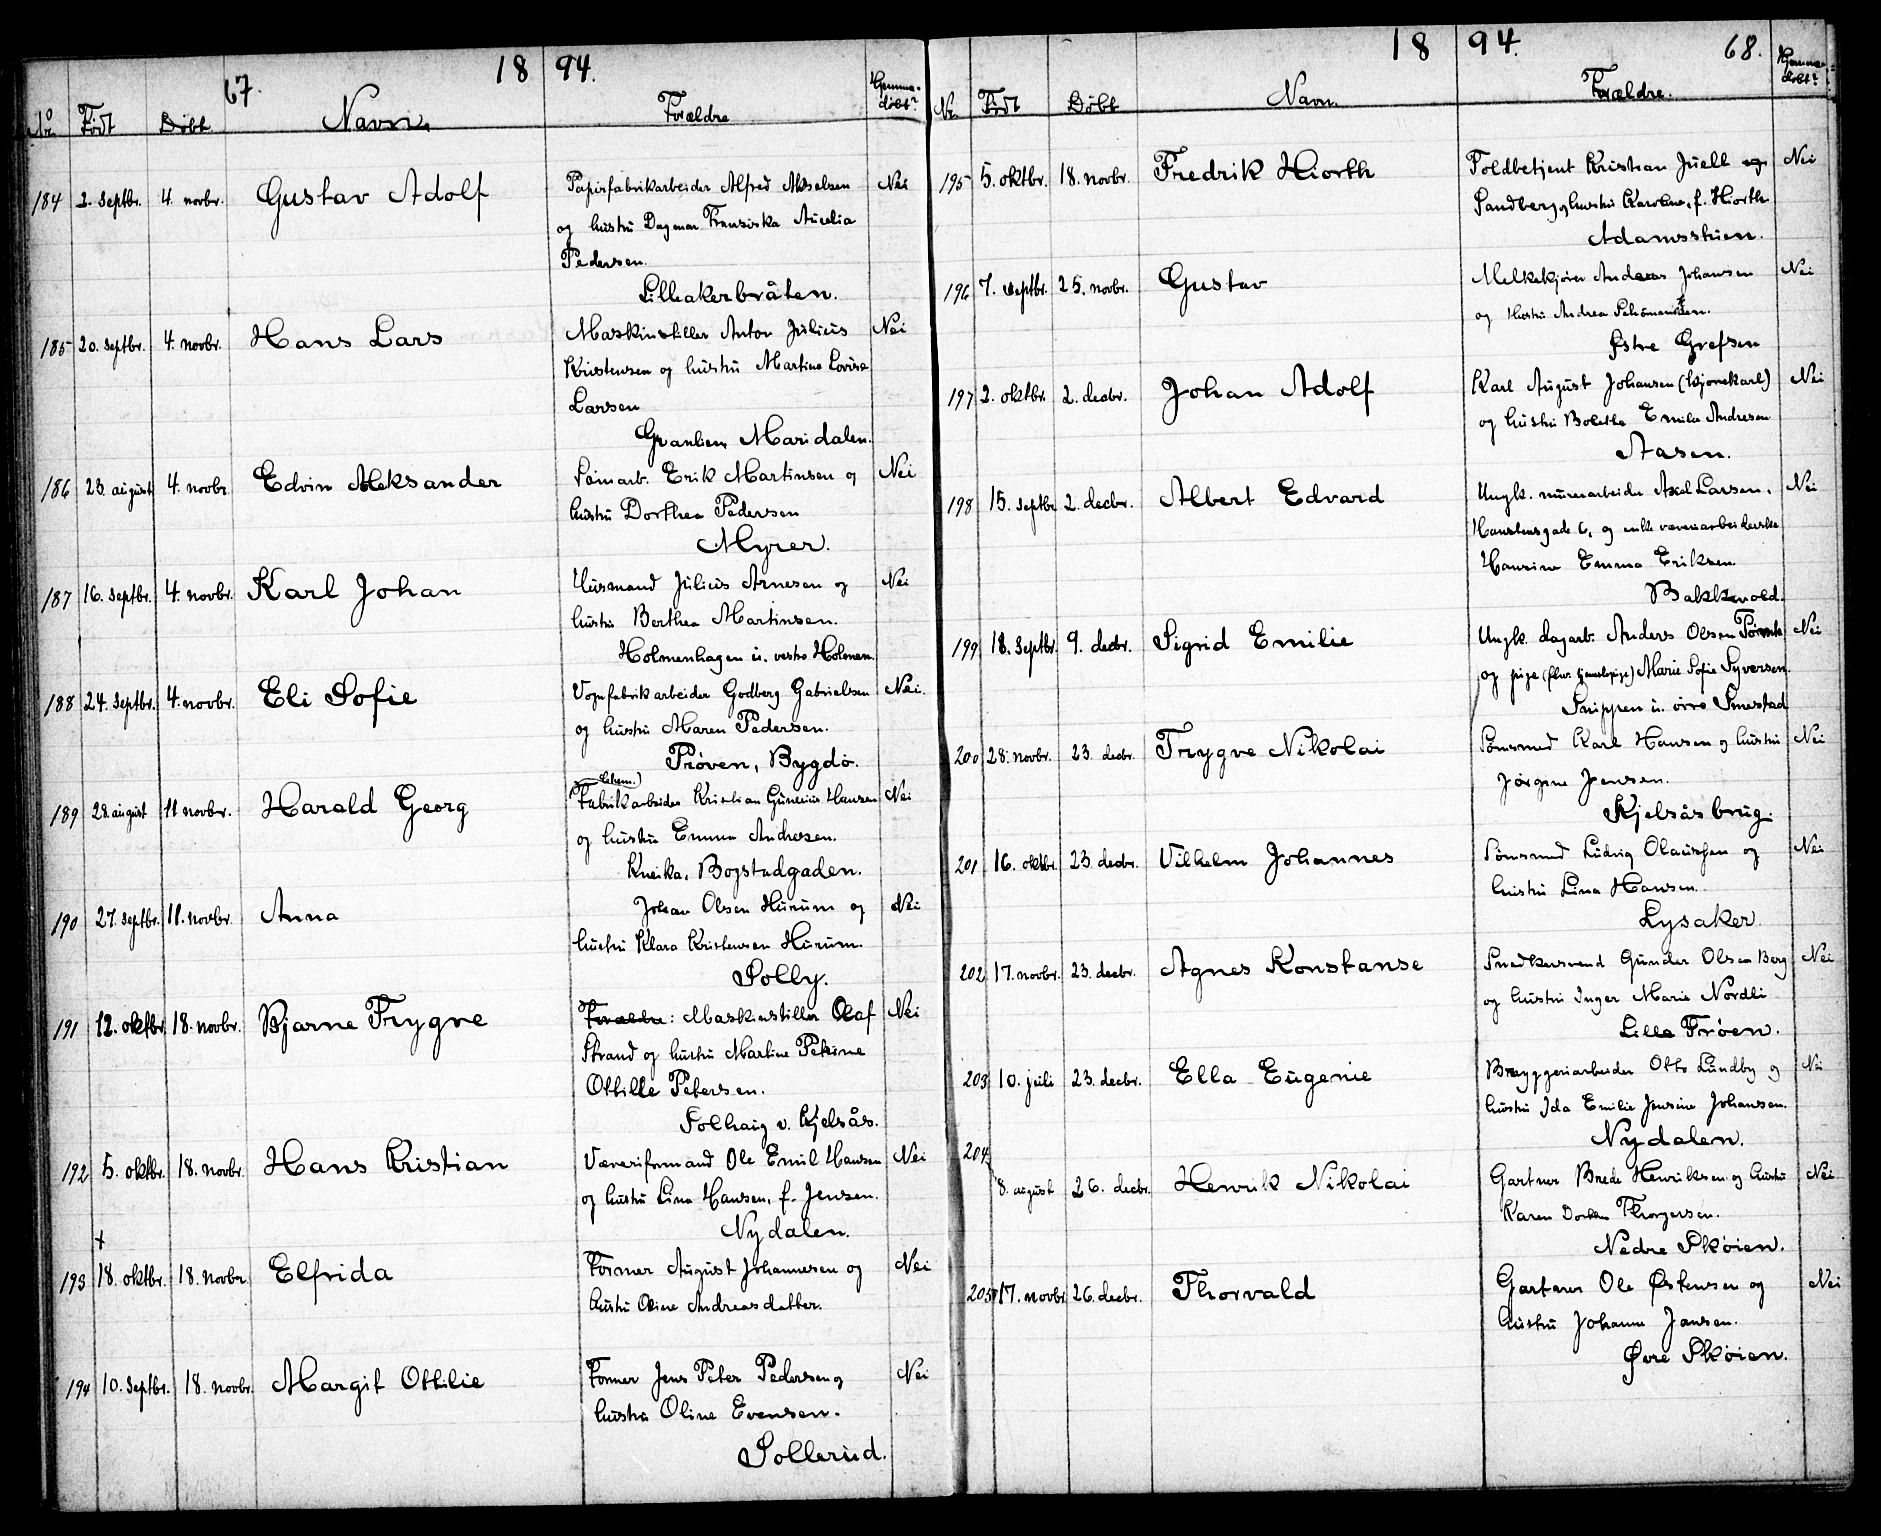 67. 18 94.
No Født Døbt Navn. Forældre Hjemmedøbt?
184 2. septbr. 4. novbr. Gustav Adolf Papirfabrikarbeider Alfred Akselsen Nei
og hustru Dagmar Fransiska Aurelia
Pedersen.
Lilleakerbråten.
185 20. septbr. 4. novbr. Hans Lars Maskinstiller Anton Julius Nei
Kristensen og hustru Martine Lovise
Larsen
Granlien, Maridalen.
186 23. august 4. novbr Edvin Aleksander Erik Martinsen og Nei
hustru Dorthea Pedersen
Myrer.
187 16. septbr. 4. novbr. Karl Johan Husmand Julius Arnesen og Nei
hustru Berthea Martinsen.
Holmenhagen u. vestre Holmen.
188 24. septbr. 4. novbr. Eli Sofie Vognfabrikarbeider Godberg Gabrielsen Nei.
og hustru Maren Pedersen.
Prøven, Bygdø.
189 28. august 11 novbr. Harald Georg Fabrikarbeider Kristian Hansen Nei
og hustru Emma Andresen.
Kneika, Bogstadgaden.
190 27. septbr. 11. novbr. Anna Johan Olsen Hurum og Nei
hustru Klara Kristensen Hurum.
Solly.
191 12. oktbr. 18. novbr. Bjarne Trygve Forældre: Maskinstiller Olaf Nei
Strand og hustru Martine Petrine
Ottilie Petersen.
v. Kjelsås.
192 5. oktbr. 18. novbr. Hans Kristian Væveriformand Ole Emil Hansen Nei
og hustru Lina Hansen, f. Jensen.
Nydalen.
+
193 18. oktbr. 18. novbr. Elfrida Former August Johannesen og Nei
hustru Oline Andreasdatter.
194 10. septbr. 18. novbr. Margit Ottilie Former Jens Peter Pedersen og Nei
hustru Oline Evensen.
Sollerud.
18 94. 68.
Nr. Født Døbt Navn. Forældre. Hjemmedøbt?
195 5. oktbr. 18. novbr. Fredrik Hiorth Toldbetjent Kristian Juell og Nei
Sandberg og hustru Karoline, f. Hiorth
Adamsstuen.
196 7. septbr. 25. novbr. Gustav Melkekjører Anders Johansen Nei
og Hustru Andrea
Østre Grefsen
197 2. oktbr. 2. decbr. Johan Adolf Karl August Johansen (kjørekarl) Nei
og hustru Bolette Emilie Andresen
Aasen.
198 15. septbr 2. decbr. Albert Edvard Ungk. murerarbeider Axel Larsen, Nei
Hausteensgade 6, og enke væveriarbeiderske
Hansine Emma Eriksen.
Bakkevold.
199 18. septbr. 9. decbr. Sigrid Emilie Ungk. dagarb. Anders Olsen Nei
og pige (fhv. tjenestepige) Marie Sofie Syversen.
Snippen u. øvre Smestad
200 28. novbr. 23. decbr. Trygve Nikolai Karl Hansen og hustru Nei
Jørgine Jensen.
Kjelsås brug.
201 16. oktbr. 23. decbr. Vilhelm Johannes Ludvig Olaussen og Nei
hustru Lina Hansen.
Lysaker.
202 17. novbr. 23. decbr. Agnes Konstanse Snedkersvend Gunder Olsen Berg Nei
og hustru Inger Marie Nordli
Lille Frøen.
203 10. juli 23. decbr. Ella Eugenie Bryggeriarbeider Otto Lundby og Nei
hustru Ida Emilie Jensine Johansen.
Nydalen.
204 8. august 26. decbr. Henrik Nikolai Gartner Brede Henriksen og hustru Nei
Karen Dorthea Thorgersen.
Nedre Skøien.
205 17. novbr 26. decbr. Thorvald Gartner Ole Østensen og Nei
hustru Johanne Jansen.
Øvre Skøien.